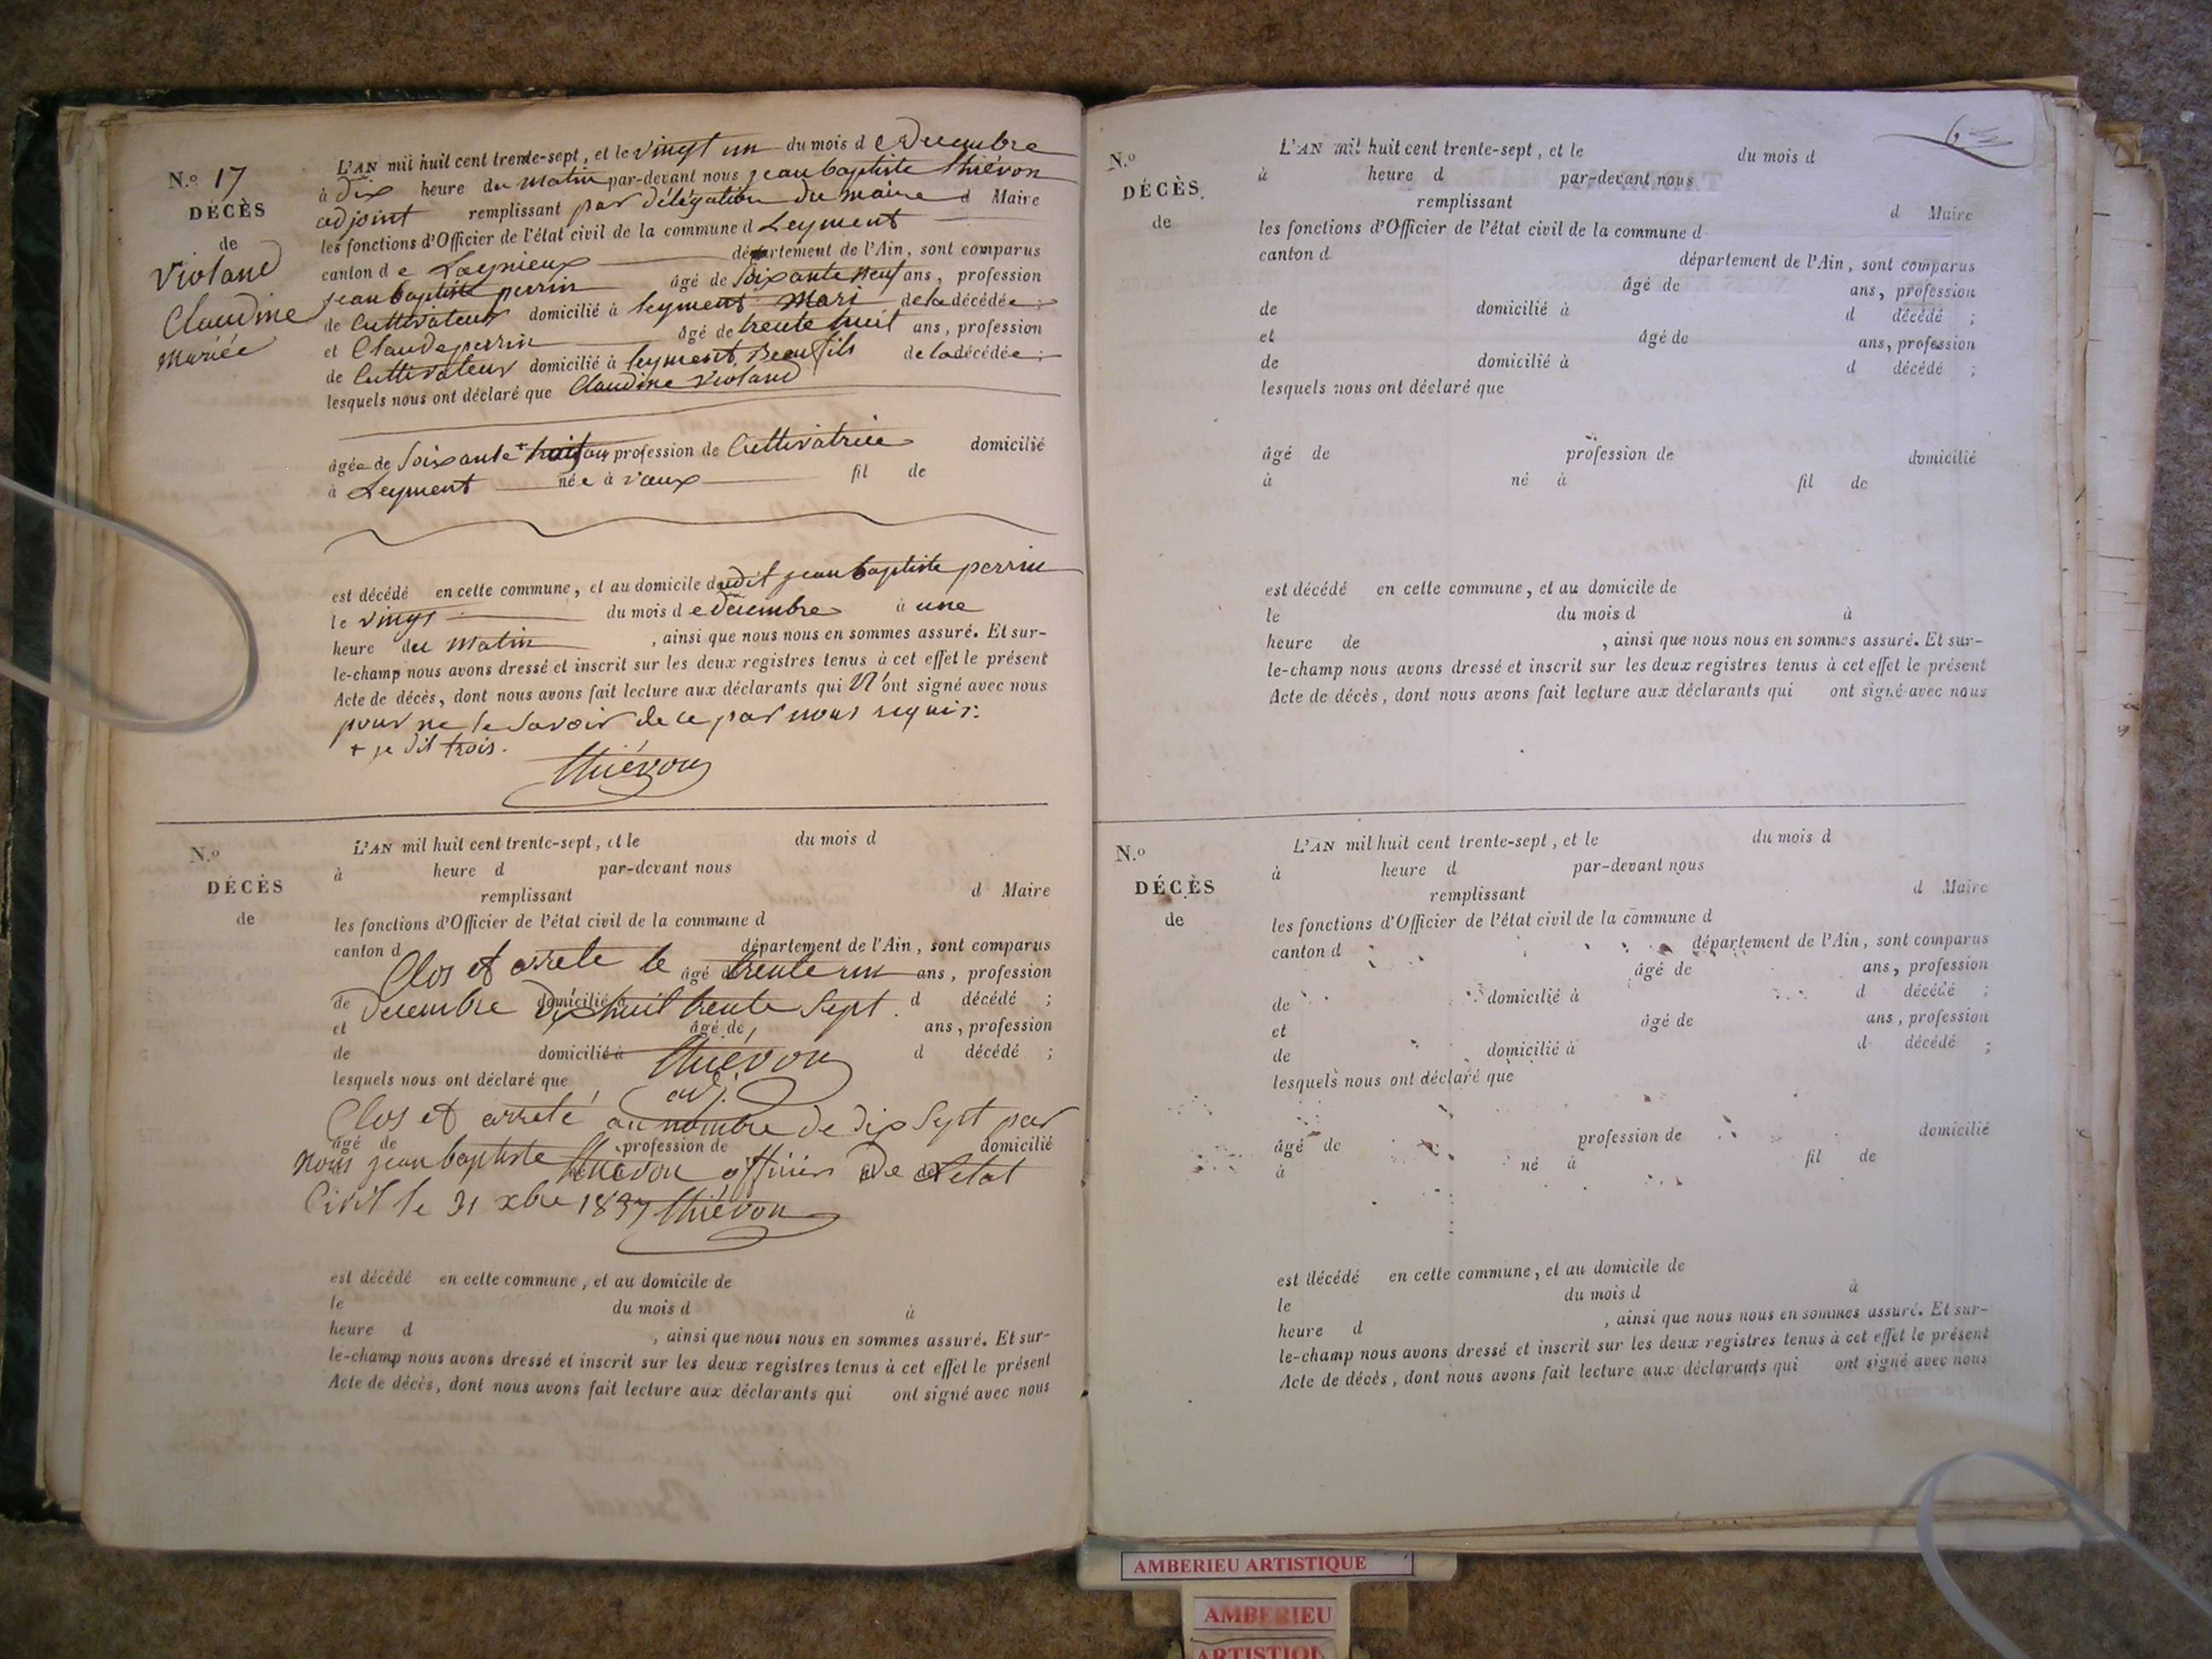 N.º 17
DÉCÈS
de
Violand
Claudine
Mariée
L'AN mil huit cent trente-sept, et le vingt un du mois d e Decembre
à dix heure du matin par-devant nous jean baptiste thiévon
adjoint remplissant par délégation du maire d Maire
les fonctions d'Officier de l'état civil de la commune d Leyment
canton d e Lagnieux département de l'Ain, sont comparus
jean baptiste perrin âgé de soixante neuf ans, profession
de Cultivateur domicilié à leyment Mari de la décédée ;
et Claude perrin âgé de trente huit ans, profession
de Cultivateur domicilié à leyment, Beau fils de la décédée ;
lesquels nous ont déclaré que Claudine violand
âgée de soixante + huit ans profession de Cultivatrice domicilié
à Leyment née à vaux fil de
est décédé en cette commune, et au domicile dudit jean baptiste perrin
le vingt du mois d e décembre à une
heure du matin , ainsi que nous nous en sommes assuré. Et sur-
le-champ nous avons dressé et inscrit sur les deux registres tenus à cet effet le présent
Acte de décès, dont nous avons fait lecture aux déclarants qui n'ont signé avec nous
pour ne le savoir de ce par nous requis.
+ je dit trois.
thiévon
N.º
DÉCÈS
de
L'AN mil huit cent trente-sept, et le du mois d
à heure d par-devant nous
remplissant d Maire
les fonctions d'Officier de l'état civil de la commune d
canton d département de l'Ain, sont comparus
Clos et arrete le trente un
âgé de ans, profession
de domicilié à d décédé ;
Decembre dix huit trente sept.
et âgé de ans, profession
de domicilié à d décédé ;
thiévon
adj.
lesquels nous ont déclaré que
Clos et arreté au nombre de dix sept par
âgé de profession de domicilié
nous jean baptiste thiévon officier de l'etat
Civil le 31 xbre 1837 thiévon
est décédé en cette commune, et au domicile de
le du mois d à
heure d , ainsi que nous nous en sommes assuré. Et sur-
le-champ nous avons dressé et inscrit sur les deux registres tenus à cet effet le présent
Acte de décès, dont nous avons fait lecture aux déclarants qui ont signé avec nous
N.º
DÉCÈS
de
L'AN mil huit cent trente-sept, et le du mois d
à heure d par-devant nous
remplissant d Maire
les fonctions d'Officier de l'état civil de la commune d
canton d département de l'Ain, sont comparus
âgé de ans, profession
de domicilié à d décédé ;
et âgé de ans, profession
de domicilié à d décédé ;
lesquels nous ont déclaré que
âgé de profession de domicilié
à né à fil de
est décédé en cette commune, et au domicile de
le du mois d à
heure de , ainsi que nous nous en sommes assuré. Et sur-
le-champ nous avons dressé et inscrit sur les deux registres tenus à cet effet le présent
Acte de décès, dont nous avons fait lecture aux déclarants qui ont signé avec nous
N.º
DÉCÈS
de
L'AN mil huit cent trente-sept, et le du mois d
à heure d par-devant nous
remplissant d Maire
les fonctions d'Officier de l'état civil de la commune d
canton d département de l'Ain, sont comparus
âgé de ans, profession
de domicilié à d décédé ;
et âgé de ans, profession
de domicilié à d décédé ;
lesquels nous ont déclaré que
âgé de profession de domicilié
à né à fil de
est décédé en cette commune, et au domicile de
le du mois d à
heure d , ainsi que nous nous en sommes assuré. Et sur-
le-champ nous avons dressé et inscrit sur les deux registres tenus à cet effet le présent
Acte de décès, dont nous avons fait lecture aux déclarants qui ont signé avec nous
AMBERIEU ARTISTIQUE
AMBERIEU